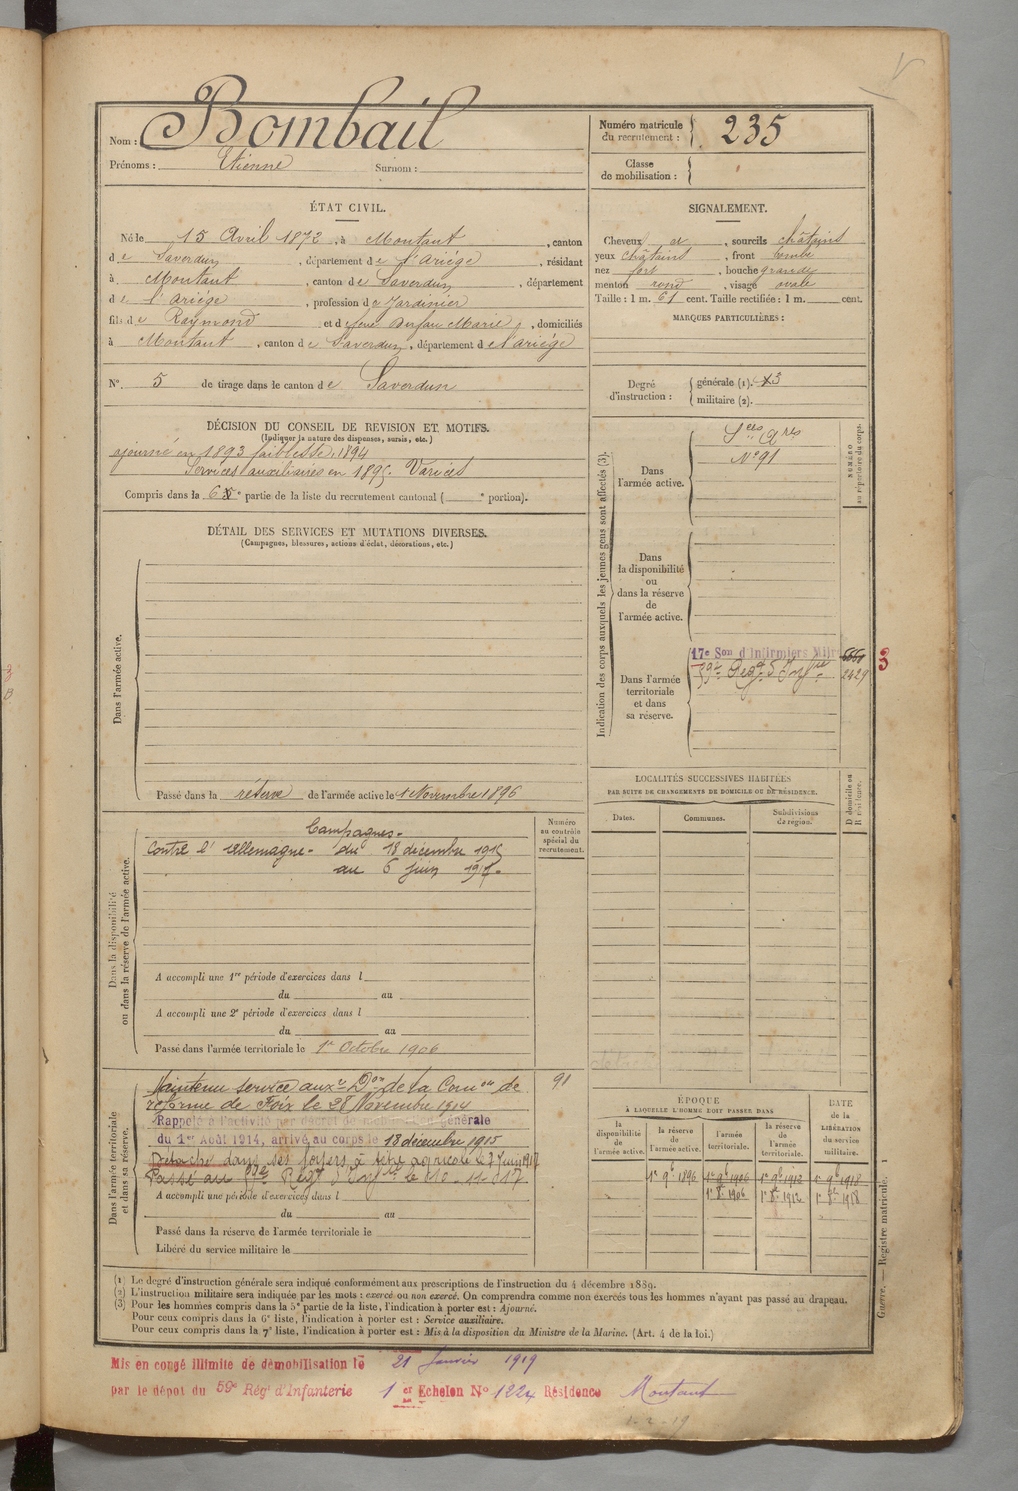 Nom : Bombail
Prénoms : Etienne Surnom :
Numéro matricule du recrutement : 235
Classe de mobilisation :
ÉTAT CIVIL.
Né le 15 Avril 1872, à Montaut, canton
de Saverdun, département de l'Ariége, résidant
à Montaut, canton de Saverdun, département
de l'Ariége, profession de Jardinier
fils de Raymond et de feue Marie, domiciliés
à Montaut, canton de Saverdun, département de l'Ariége
N° 5 de tirage dans le canton de Saverdun
SIGNALEMENT.
Cheveux et, sourcils châtains
yeux châtains, front bombé
nez fort, bouche grande
menton rond, visage ovale
Taille : 1 m. 61 cent. Taille rectifiée : 1 m. cent.
MARQUES PARTICULIÈRES :
Degré d'instruction :
générale (1). 3
militaire (2).
DÉCISION DU CONSEIL DE REVISION ET MOTIFS.
(Indiquer la nature des dispenses, sursis, etc.)
ajourné en 1893 faiblesse, 1894
Services auxiliaires en 1895. Varices
Compris dans la 6e partie de la liste du recrutement cantonal ( e portion).
DÉTAIL DES SERVICES ET MUTATIONS DIVERSES.
(Campagnes, blessures, actions d'éclat, décorations, etc.)
Dans l'armée active.
Passé dans la réserve de l'armée active le 1 Novembre 1896
Indication des corps auxquels les jeunes gens sont affectés (3).
NUMÉRO au répertoire du corps.
Dans l'armée active.
Sces Ares
N° 91
Dans la disponibilité ou dans la réserve de l'armée active.
Dans l'armée territoriale et dans sa réserve.
17e Son d'Infirmiers Mil
59e Regt d'Infie
2429
3
LOCALITÉS SUCCESSIVES HABITÉES
PAR SUITE DE CHANGEMENTS DE DOMICILE OU DE RÉSIDENCE.
Dates. Communes. Subdivisions de région. D domicile ou R résidence.
Dans la disponibilité ou dans la réserve de l'armée active.
Numéro au contrôle spécial du recrutement.
Campagnes.
Contre l'Allemagne du 18 décembre 1915
au 6 Juin 1917.
A accompli une 1re période d'exercices dans l
du au
A accompli une 2e période d'exercices dans l
du au
Passé dans l'armée territoriale le 1er Octobre 1906
Dans l'armée territoriale et dans sa réserve.
Maintenu service auxre Don de la Comon de 91
réforme de Foix le 28 Novembre 1914
Rappelé à l'activité par décret de mobilisation générale
du 1er Août 1914, arrivé au corps le 18 décembre 1915
Détaché dans ses foyers à titre agricole le 7 Juin 1917
Passé au 59e Regt d'Infie le
A accompli une période d'exercices dans l
du au
Passé dans la réserve de l'armée territoriale le
Libéré du service militaire le
ÉPOQUE
À LAQUELLE L'HOMME DOIT PASSER DANS
la disponibilité de l'armée active. la réserve de l'armée active. l'armée territoriale. la réserve de l'armée territoriale.
DATE de la LIBÉRATION du service militaire.
1er 9bre 1896 1er 9bre 1906 1er 9bre 1912 1er 9bre 1918
1er 8bre 1906 1er 8bre 1912 1er 8bre 1918
Guerre. — Registre matricule. 1
(1) Le degré d'instruction générale sera indiqué conformément aux prescriptions de l'instruction du 4 décembre 1889.
(2) L'instruction militaire sera indiquée par les mots : exercé ou non exercé. On comprendra comme non exercés tous les hommes n'ayant pas passé au drapeau.
(3) Pour les hommes compris dans la 5e partie de la liste, l'indication à porter est : Ajourné.
Pour ceux compris dans la 6e liste, l'indication à porter est : Service auxiliaire.
Pour ceux compris dans la 7e liste, l'indication à porter est : Mis à la disposition du Ministre de la Marine. (Art. 4 de la loi.)
Mis en congé illimité de démobilisation le 21 Janvier 1919
par le dépôt du 59e Rég' d'Infanterie 1er Echelon N° 1224 Résidence Montaut
1-2-19